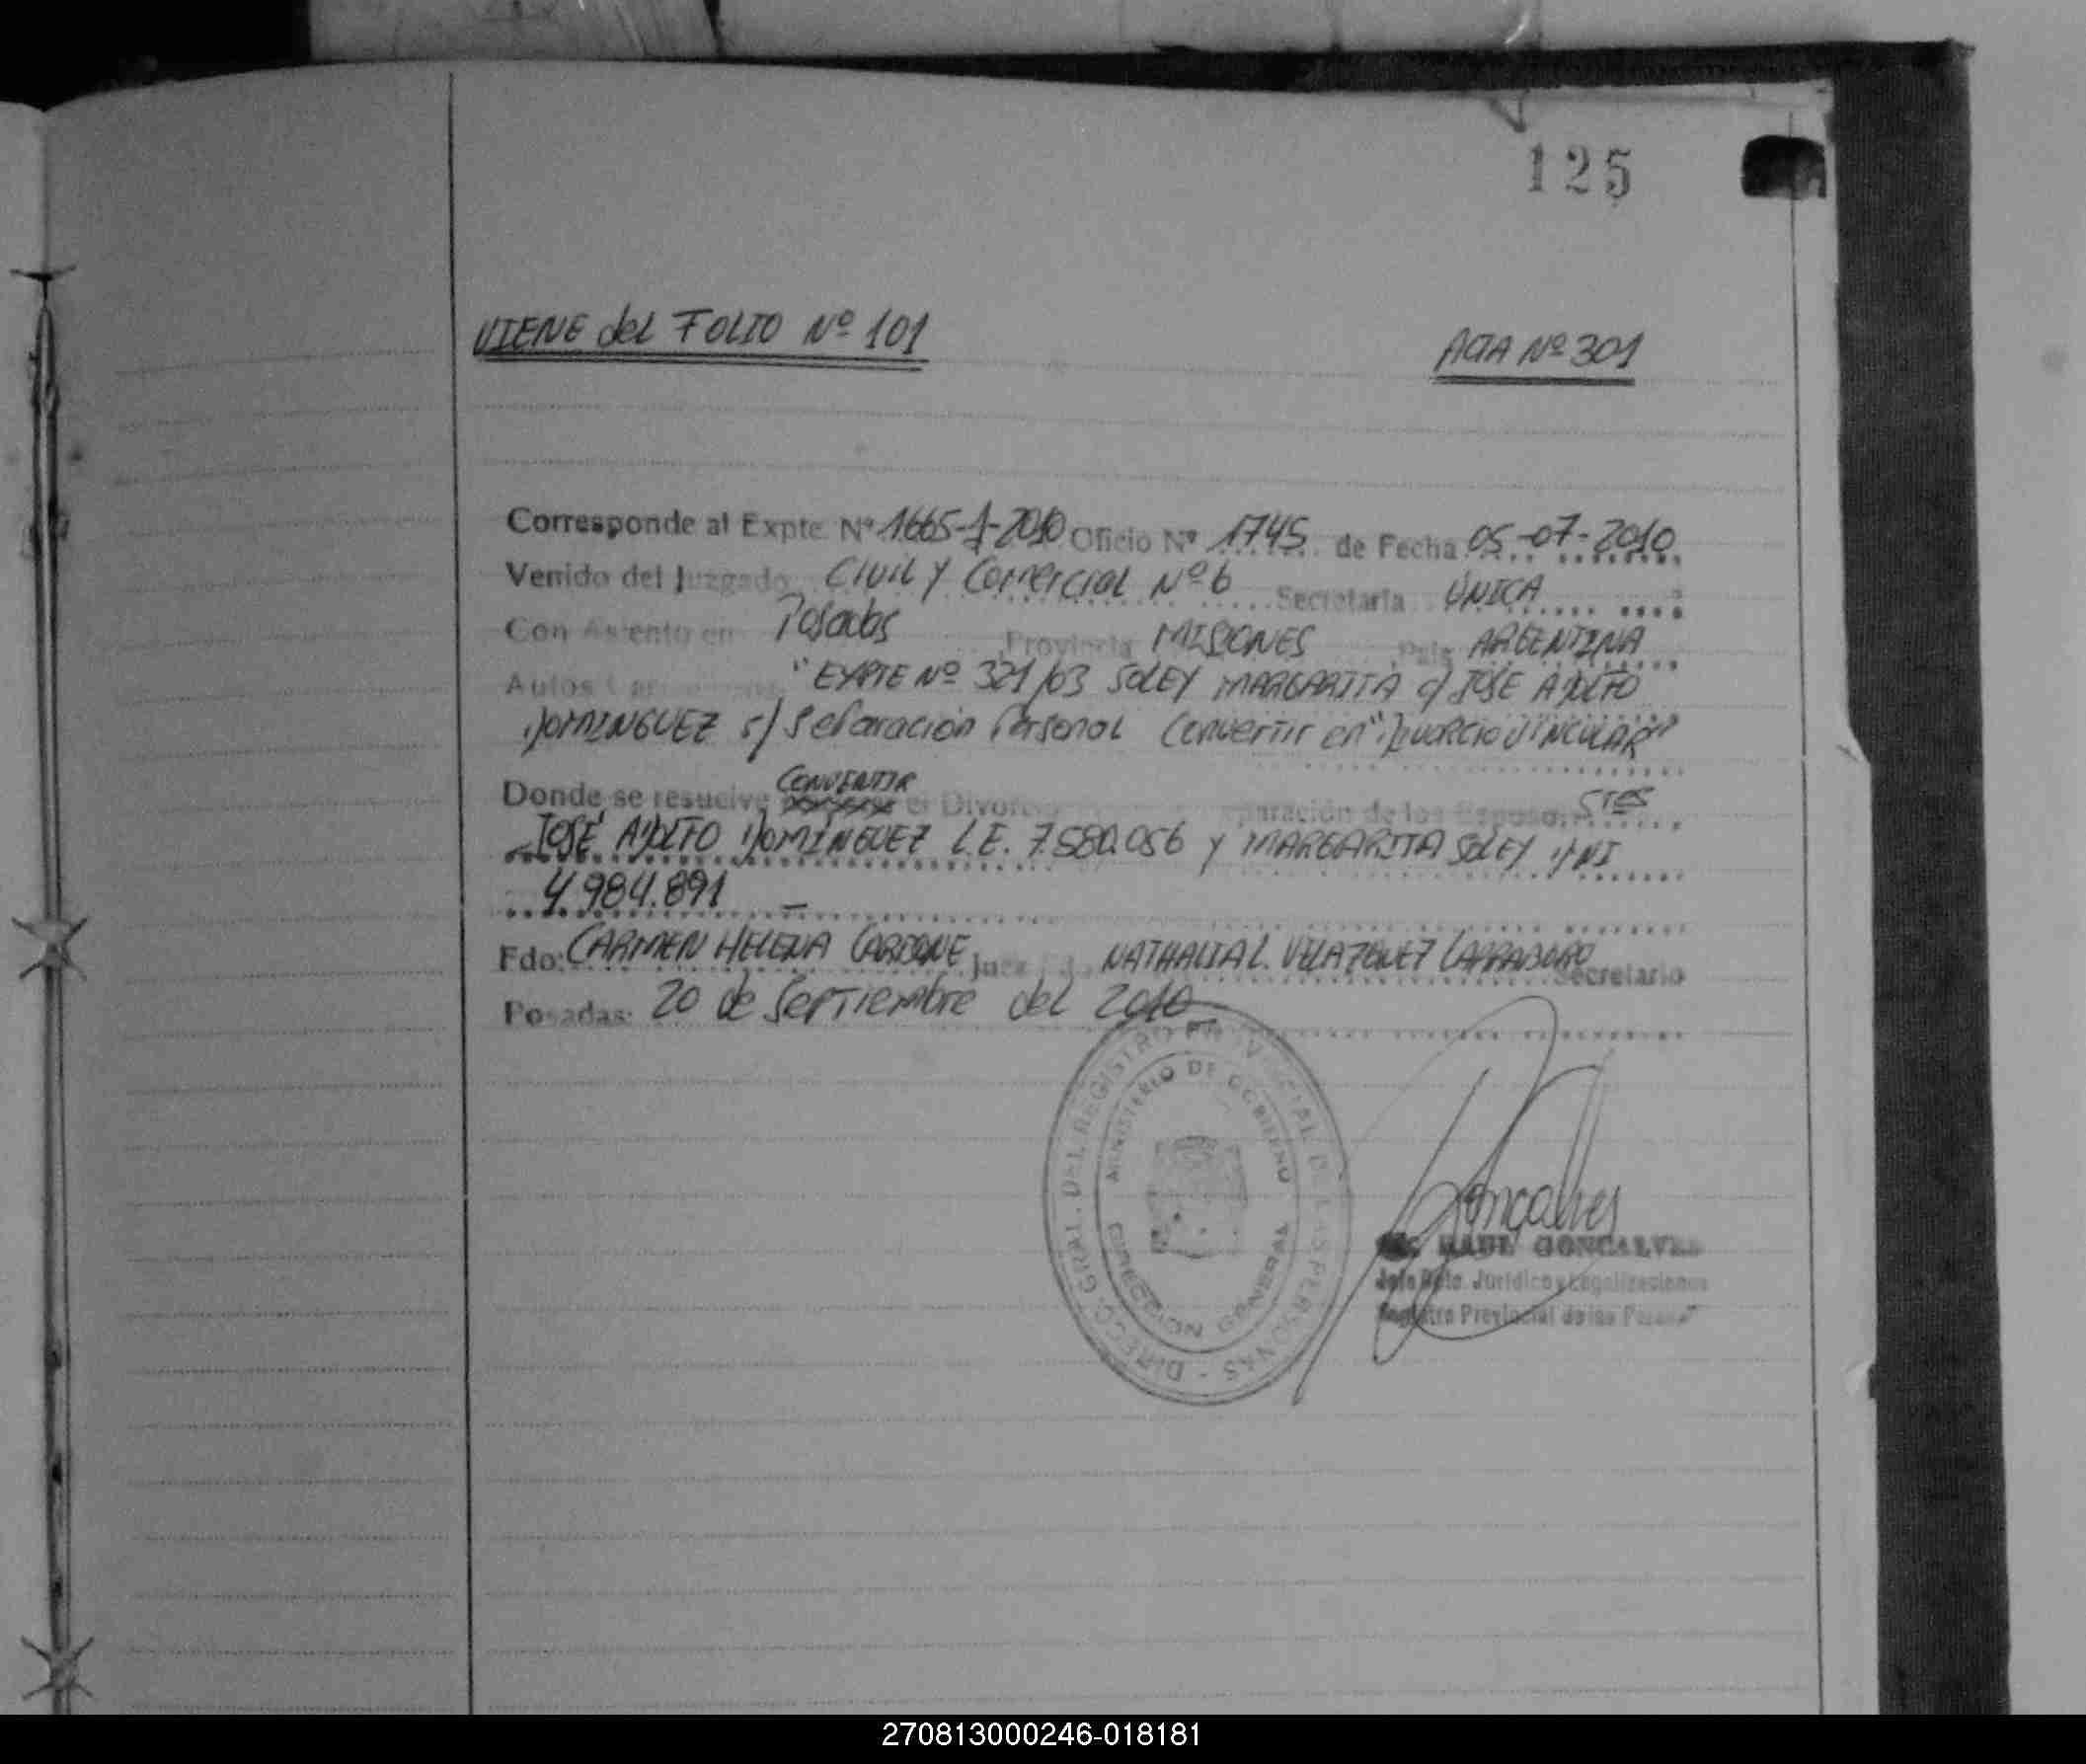 125
VIENE del FOLIO Nº 101
ACTA Nº 301
Corresponde al Expte. Nº 1665-J-2010 Oficio Nº 1745 de Fecha 05-07-2010
Venido del Juzgado CIVIL Y Comercial Nº 6 Secretaria ÚNICA
Con Asiento en Posadas Provincia MISIONES Pais ARGENTINA
Autos "EXPTE Nº 321/03 SOLEY MARGARITA c/ JOSE ADOLFO
DOMINGUEZ s/ Separación Personal Convertir en "DIVORCIO VINCULAR"
Donde se resuelve CONVERTIR el Divorcio paración de los Esposos Sres
JOSÉ ADOLFO DOMINGUEZ L.E. 7.580.056 y MARGARITA SOLEY DNI
4.984.891 —
Fdo: CARMEN HELENA CARBONE Juez NATHALIA L. VELAZQUEZ Secretario
Posadas: 20 de Septiembre del 2010
DIRECC. GRAL. DEL REGISTRO PROVINCIAL DE LAS PERSONAS -
MINISTERIO DE GOBIERNO
DIRECCION GENERAL
Goncalves
RAUL GONCALVES
Jefe Dpto. Jurídico y Legalizaciones
Registro Provincial de las Personas
270813000246-018181